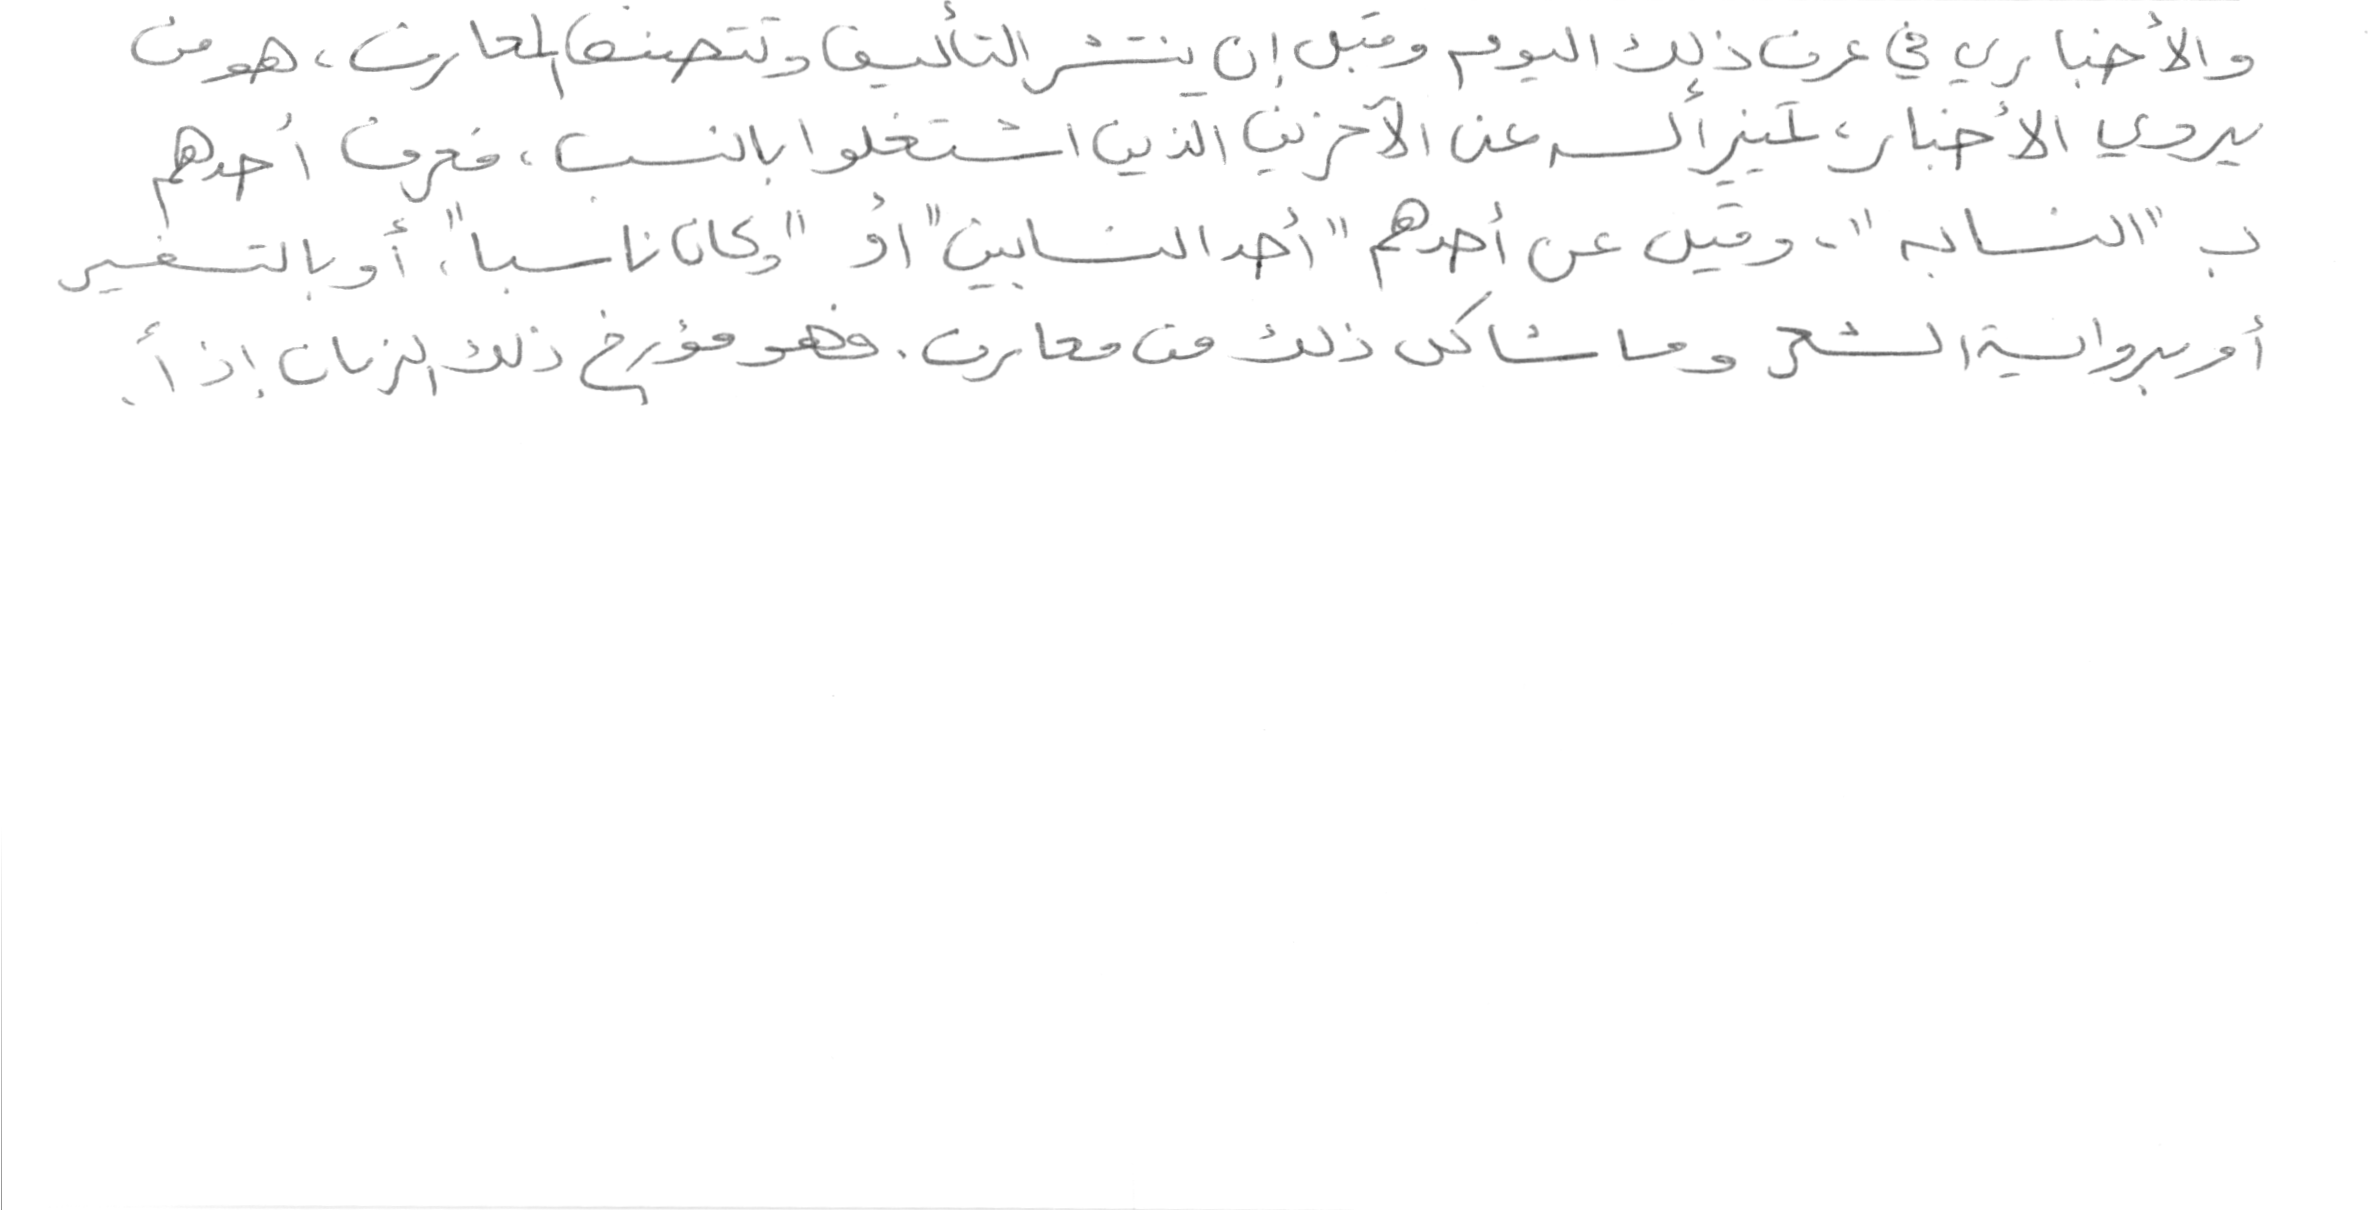 والأخباري في عرف ذلك اليوم وقبل إن ينتشر التأليف وتتصنف المعارف، هو من
يروي الأخبار، تمييزاً له عن الآخرين الذين اشتغلوا بالنسب، فعرف أحدهم
ب "النسابه"، وقيل عن أحدهم "أحد النسابين" أو "وكان ناسبا"، أو بالتفسير
أو برواية الشعر وما شاكل ذلك من معارف. فهو مؤرخ ذلك الزمان إذاً.